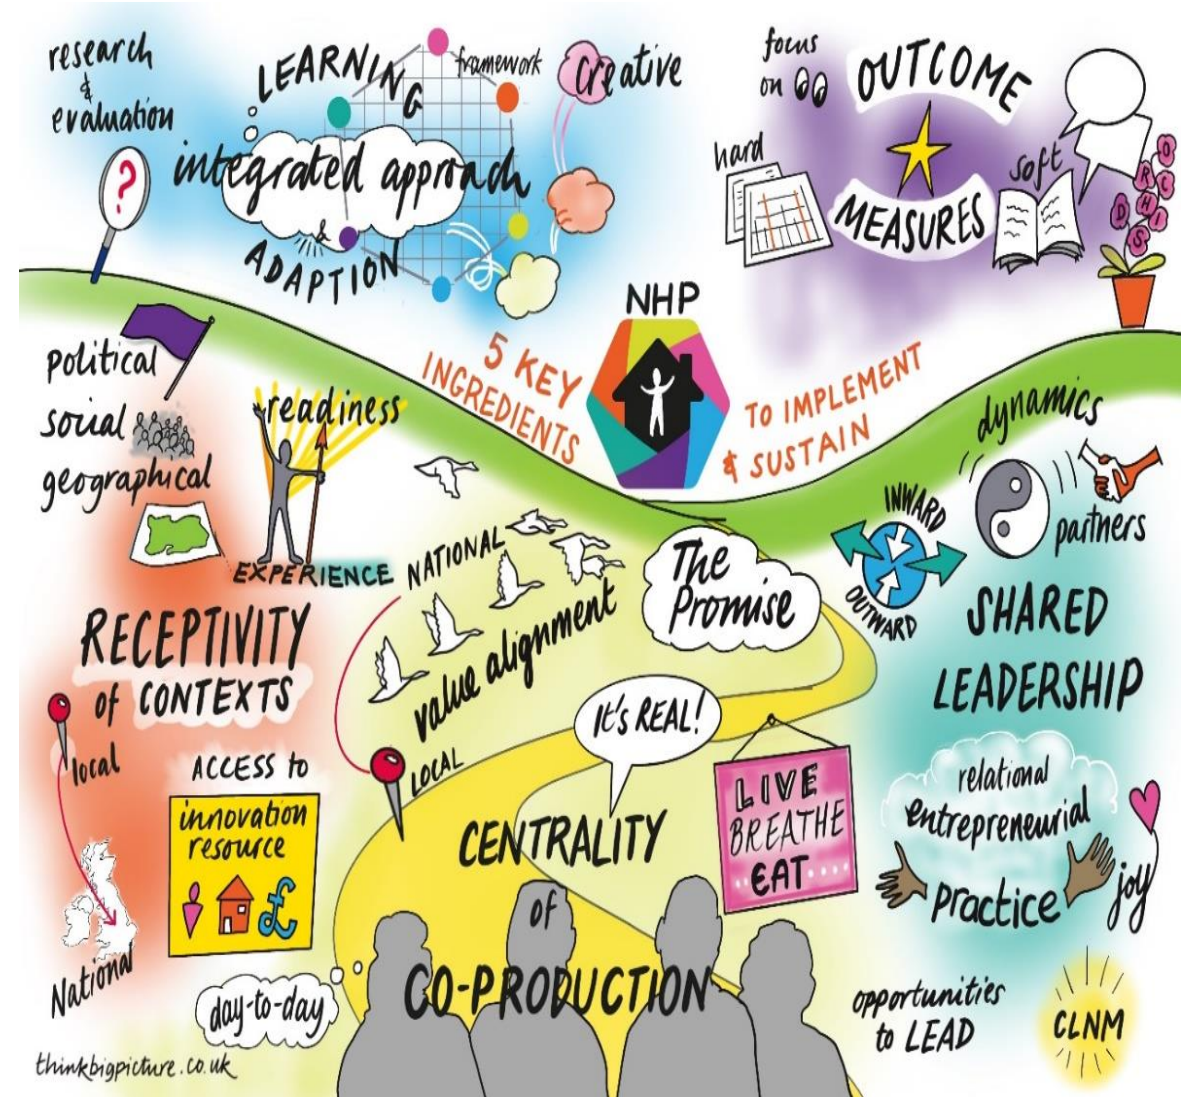 research
&
evaluation
?
LEARNING
framework
creative
integrated approach
&
ADAPTION
focus
on
OUTCOME
MEASURES
hard
soft
ORCHIDS
NHP
5 KEY
INGREDIENTS
TO IMPLEMENT
& SUSTAIN
political
social
geographical
readiness
EXPERIENCE
RECEPTIVITY
of CONTEXTS
local
National
ACCESS to
innovation
resource
£
day-to-day
NATIONAL
value alignment
LOCAL
The
Promise
It's REAL!
CENTRALITY
OF
CO-PRODUCTION
LIVE
BREATHE
EAT....
dynamics
partners
INWARD
OUTWARD
SHARED
LEADERSHIP
relational
entrepreneurial
practice
joy
opportunities
to LEAD
CLNM
thinkbigpicture.co.uk